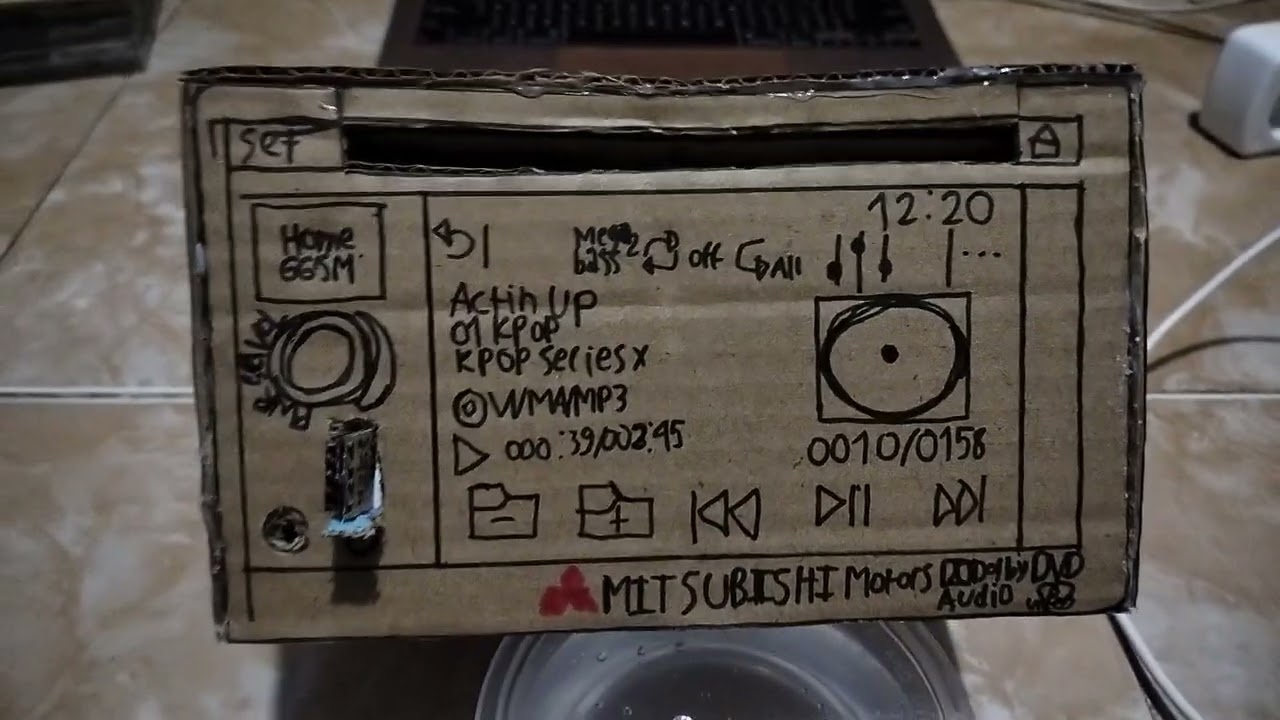 SET
Home
12:20
Mega
bass
2
Off
All
Actin Up
01 KPOP
KPOP series x
WMA/MP3
000:39/002:45
0010/0158
MITSUBISHI Motors
Audio
DVD